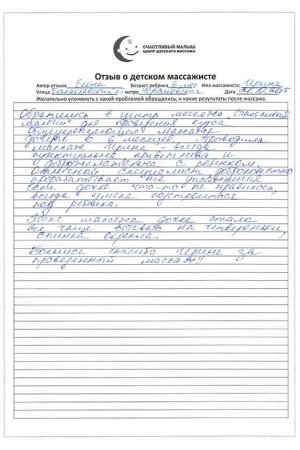 СЧАСТЛИВЫЙ МАЛЫШ
ЦЕНТР ДЕТСКОГО МАССАЖА
Отзыв о детском массажисте
Автор отзыва Елена Возраст ребенка 6 мес Имя массажиста: Ирина
Улица Балаклавский метро Чертановская Дата
Желательно упомянуть с какой проблемой обращались, и какие результаты после массажа.
Обратились в центр массажа Счастливый
малыш для проведения курса
общеукрепляющего массажа
дочке в 6 месяцев. Проводила
массаж Ирина - всегда
пунктуальна, приветлива и
доброжелательна с ребенком.
Отличный специалист, добросовестно
прорабатывает все упражнения,
если дочке что-то не нравилось,
всегда умела подстроиться
под ребенка.
После массажа дочка стала
все чаще вставать на четвереньки,
спинка окрепла.
Большое спасибо Ирине за
проведенный массаж!!